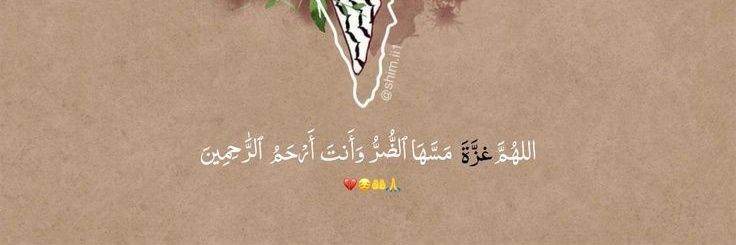 @shim.ii1
اللهُمَّ غزَّةَ مَسَّهَا ٱلضُّرُّ وَأَنتَ أَرْحَمُ ٱلرَّٰحِمِينَ
💔😔🤲🙏